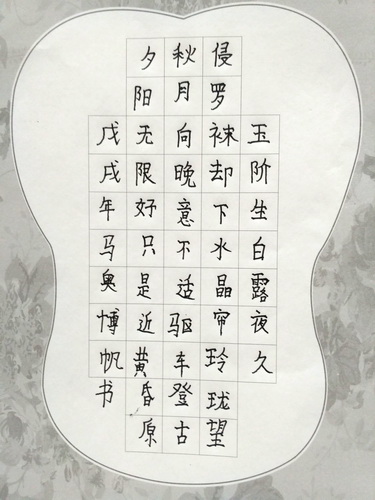 玉阶生白露夜久
侵罗袜却下水晶帘玲珑望
秋月向晚意不适驱车登古
夕阳无限好只是近黄昏原
戊戌年马奥博帆书